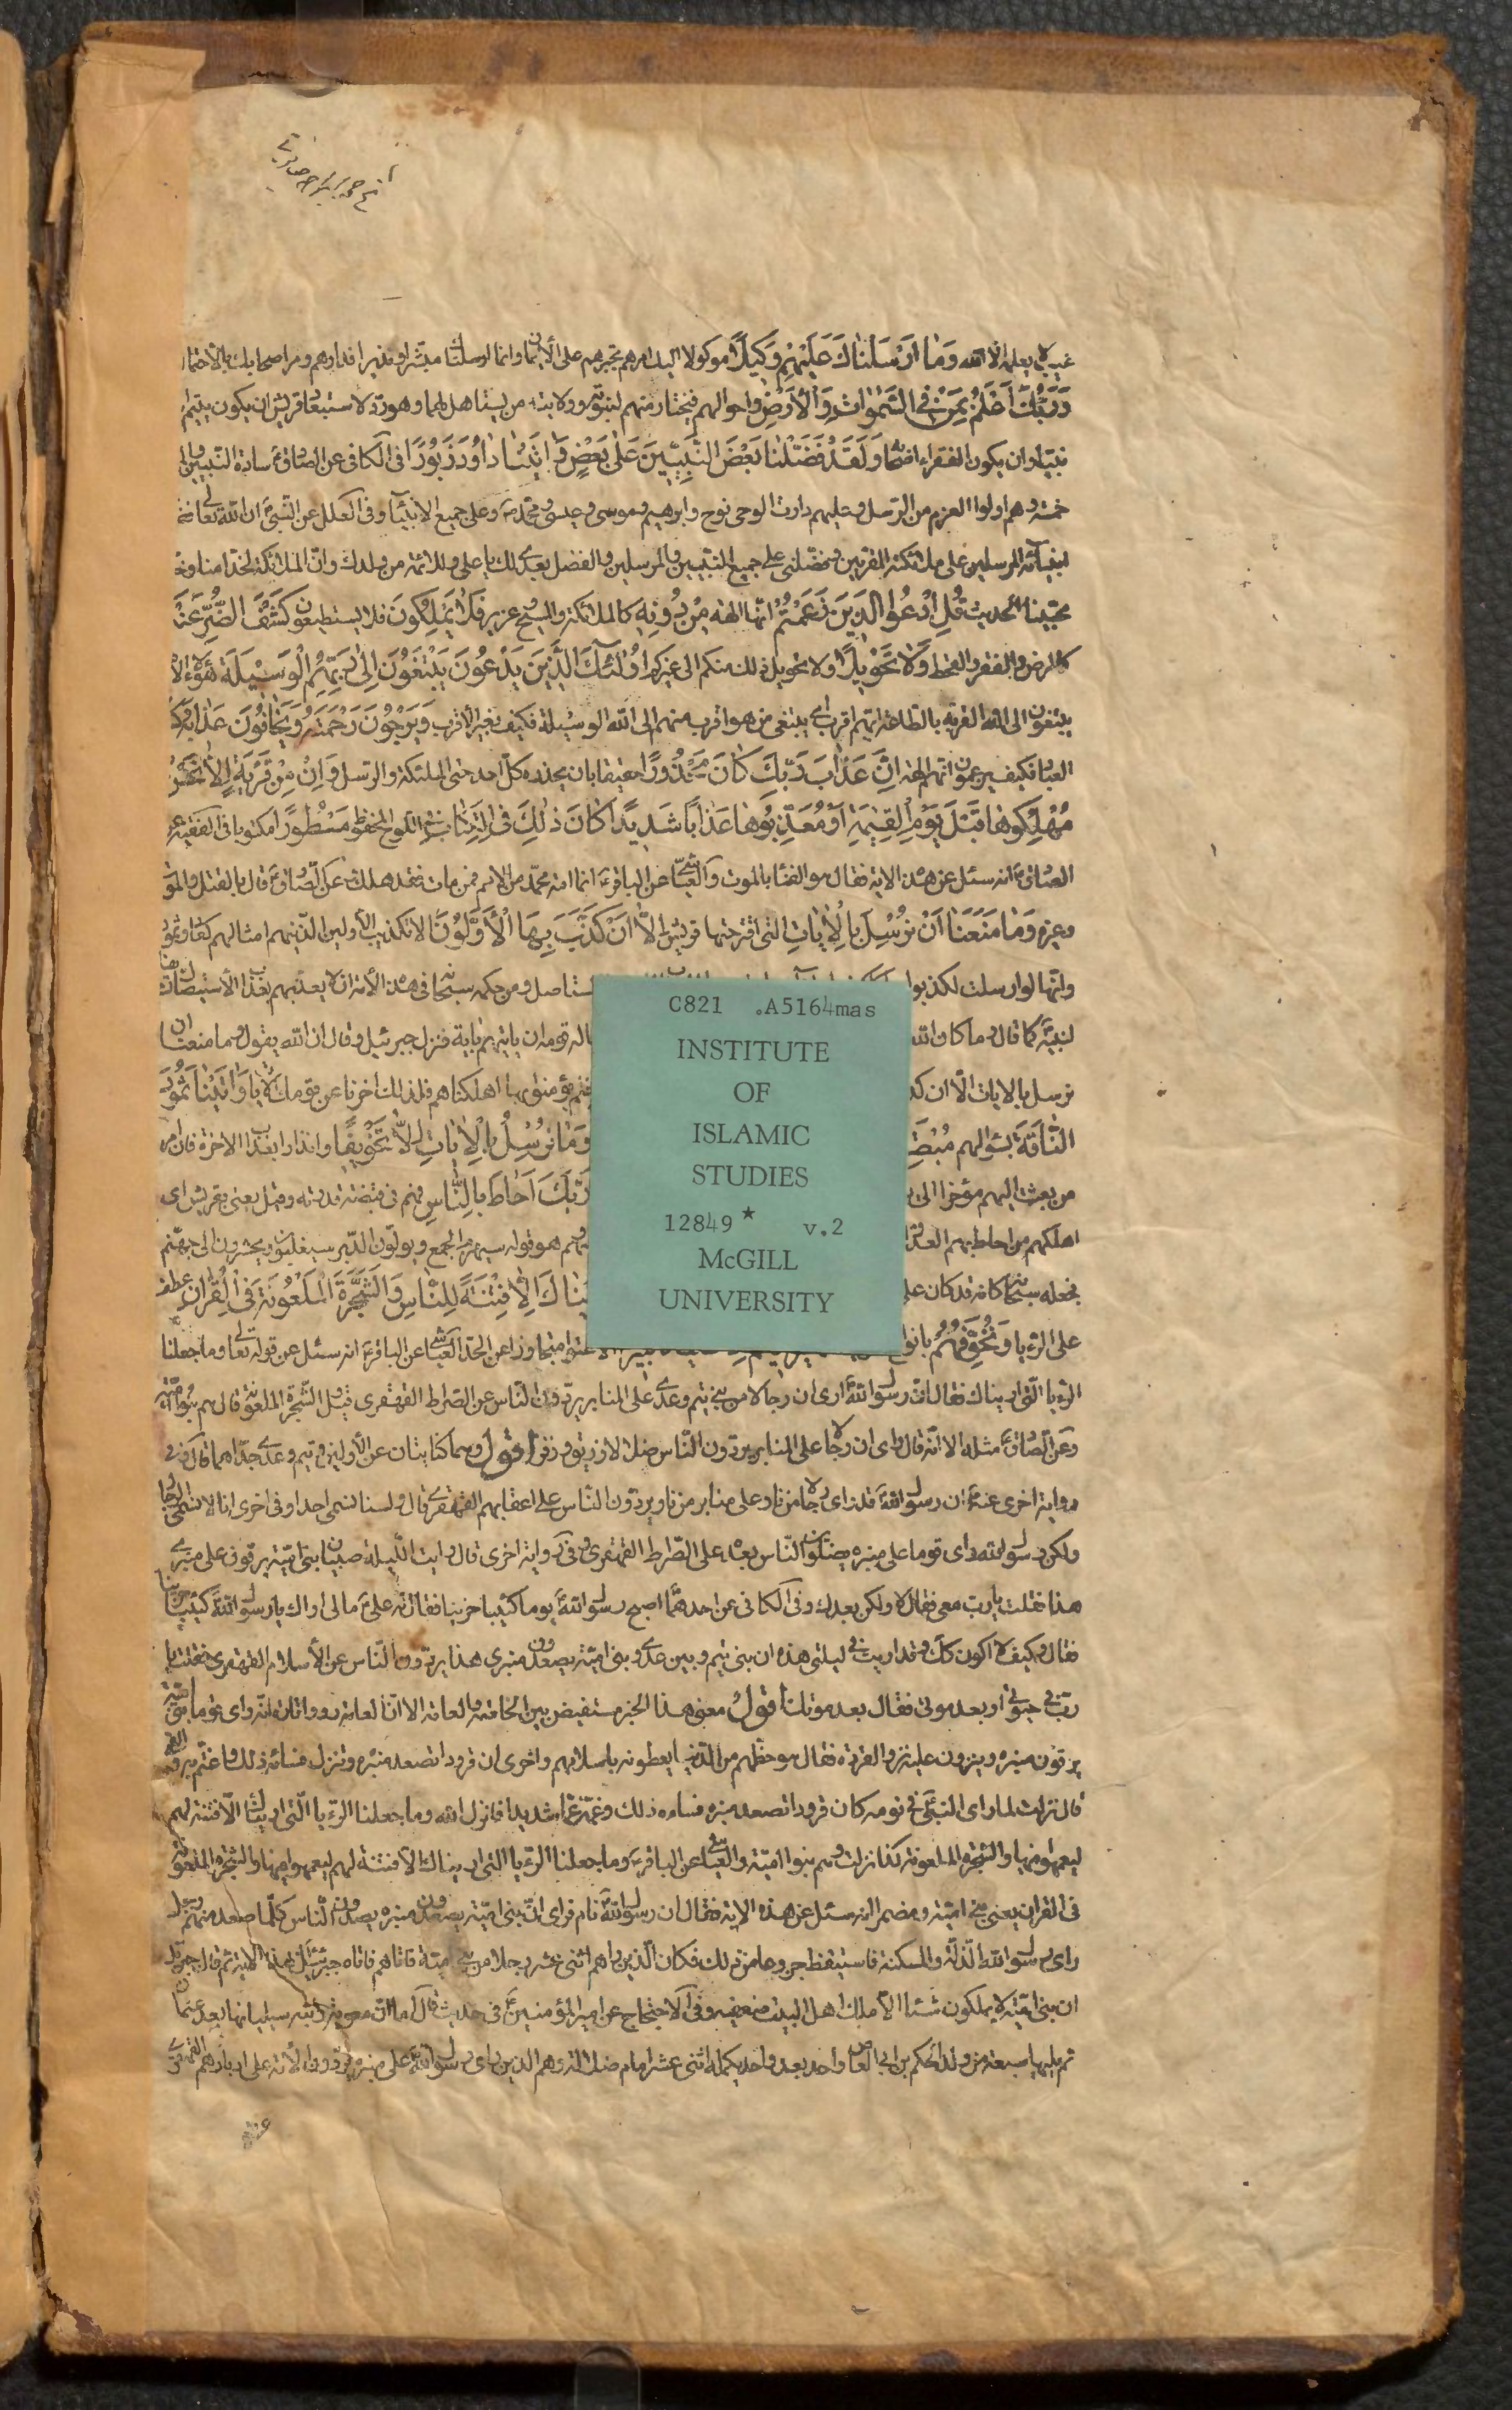 غيب لا يعلمه الا الله وَمَا أَرْسَلْنَاكَ عَلَيْهِمْ وَكِيلًا موكولا اليك امرهم تجبرهم على الايمان وانما ارسلناك مبشرا ونذيرا فدارهم ومر اصحابك بالاحتمال
وَرَبُّكَ أَعْلَمُ بِمَنْ فِي السَّمَوَاتِ وَالْأَرْضِ واحوالهم فيختار منهم لنبوته وولايته من يستاهل لهما وهو رد لاستبعاد قريش ان يكون يتيم
نبيا وان يكون الفقراء اصحابه وَلَقَدْ فَضَّلْنَا بَعْضَ النَّبِيِّينَ عَلَى بَعْضٍ وَآتَيْنَا دَاوُدَ زَبُورًا فى الكافى عن الصادق سادة النبيين والمر
خمسة وهم اولوا العزم من الرسل وعليهم دارت الوحى نوح وابرهيم وموسى وعيسى ومحمد وعلى جميع الانبياء وفى العلل عن النبى ان الله تعالى فضل
انبيائه المرسلين على ملائكته المقربين وفضلنى على جميع النبيين والمرسلين والفضل بعدى لك يا على وللائمة من ولدك وان الملائكة لخدامنا وخد
محبينا الحديث قُلِ ادْعُوا الَّذِينَ زَعَمْتُمْ انها الهة مِنْ دُونِهِ كالملائكة والمسيح وعزير فَلَا يَمْلِكُونَ فلا يستطيعون كَشْفَ الضُّرِّ عَنْكُمْ
كالمرض والفقر والقحط وَلَا تَحْوِيلًا ولا تحويل ذلك منكم الى غيركم أُولَئِكَ الَّذِينَ يَدْعُونَ يَبْتَغُونَ إِلَى رَبِّهِمُ الْوَسِيلَةَ هؤلاء الا
يبتغون الى الله القربة بالطاعة ايهم اقرب اى يبتغى من هو اقرب منهم الى الله الوسيلة فكيف بغير الاقرب وَيَرْجُونَ رَحْمَتَهُ وَيَخَافُونَ عَذَابَهُ كسا
العباد فكيف يزعمون انهم الهة إِنَّ عَذَابَ رَبِّكَ كَانَ مَحْذُورًا حقيقا بان يحذره كل احد حتى الملئكة والرسل وَإِنْ مِنْ قَرْيَةٍ إِلَّا نَحْنُ
مُهْلِكُوهَا قَبْلَ يَوْمِ الْقِيمَةِ أَوْ مُعَذِّبُوهَا عَذَابًا شَدِيدًا كَانَ ذَلِكَ فِي الْكِتَابِ فى اللوح المحفوظ مَسْطُورًا مكتوبا فى الفقيه عن
الصادق انه سئل عن هذه الاية فقال هو الفناء بالموت والعياشى عن الباقر انما امة محمد من الامم فمن مات فقد هلك وعن الصادق قال بالقتل والموت
وغيره وَمَا مَنَعَنَا أَنْ نُرْسِلَ بِالْآيَاتِ التى اقترحتها قريش إِلَّا أَنْ كَذَّبَ بِهَا الْأَوَّلُونَ الا تكذيب الاولين الذين هم امثالهم كعاد وثمود
وانها لو ارسلت لكذبوا
ستاصل ومن حكمه سبحانه فى هذه الامة ان لا يعذبهم بعذاب الاستيصال
لنبيه كما قال وما كان الله
اله قومه ان ياتيهم باية فنزل جبرئيل وقال ان الله يقول وما منعنا ان
نرسل بالايات الا ان كذ
يؤمنوا بها اهلكناهم فلذلك اخرنا عن قومك الايات وَآتَيْنَا ثَمُودَ
النَّاقَةَ بسؤالهم مُبْصِرَ
وَمَا نُرْسِلُ بِالْآيَاتِ إِلَّا تَخْوِيفًا وانذارا بعذاب الاخرة فان امر
من بعثت اليهم مؤخر الى
رَبَّكَ أَحَاطَ بِالنَّاسِ فهم فى قبضة قدرته وقيل يعنى بقريش اى
اهلكهم من احاط بهم العدو
هو قوله سيهزم الجمع ويولون الدبر سيغلبون ويحشرون الى جهنم
فجعله سبحانه كانه قد كان على
يْنَاكَ إِلَّا فِتْنَةً لِلنَّاسِ وَالشَّجَرَةَ الْمَلْعُونَةَ فِي الْقُرْآنِ عطف
على الرؤيا وَنُخَوِّفُهُمْ بانواع
الا عتوا متجاوزا عن الحد العياشى عن الباقر انه سئل عن قوله تعالى وما جعلنا
الرؤيا التى اريناك فقال ان رسول الله ارى ان رجالا من بنى تيم وعدى على المنابر يردون الناس عن الصراط القهقرى قيل والشجرة الملعونة قال هم بنو امية
وعن الصادق مثله الا انه قال راى ان رجالا على المنابر يردون الناس ضلالا زريق وزفر اقول وهما كنايتان عن الاولين وتيم وعدى جداهما قال وفى
رواية اخرى عنه ان رسول الله قد راى رجالا من نار على منابر من نار يردون الناس على اعقابهم القهقرى قال ولسنا نسمى احدا وفى اخرى انا لا نسمى رجالا
ولكن رسول الله راى قوما على منبره يضلون الناس بعده على الصراط القهقرى وفى رواية اخرى قال رايت الليلة صبيان بنى امية يرقون على منبرى
هذا فقلت يا رب معى فقال لا ولكن بعدك وفى الكافى عن احدهما اصبح رسول الله يوما كئيبا حزينا فقال له على ما لى اراك يا رسول الله كئيبا حزينا
فقال وكيف لا اكون كذلك وقد رايت فى ليلتى هذه ان بنى تيم وبنى عدى وبنى امية يصعدون منبرى هذا يردون الناس عن الاسلام القهقرى فقلت يا
رب فى حيوتى او بعد موتى فقال بعد موتك اقول معنى هذا الخبر مستفيض بين الخاصة والعامة الا ان العامة رووا تارة انه راى قوما من بنى امية
يرقون منبره وينزون عليه نزو القردة فقال هو حظهم من الدنيا يعطونه باسلامهم واخرى ان قرودا تصعد منبره وتنزل فساءه ذلك واغتم به والقمى
قال نزلت لما راى النبى فى نومه كان قرودا تصعد منبره فساءه ذلك وغمه غما شديدا فانزل الله وما جعلنا الرؤيا التى اريناك الا فتنة لهم
ليعمهوا فيها والشجرة الملعونة كذا نزلت وهم بنوا امية والعياشى عن الباقر وما جعلنا الرؤيا التى اريناك الا فتنة لهم ليعمهوا فيها والشجرة الملعونة
فى القران يعنى بنى امية ومضمرا انه سئل عن هذه الاية فقال ان رسول الله نام فراى ان بنى امية يصعدون منبره يصدون الناس كلما صعد منهم رجل
راى رسول الله الذلة والمسكنة فاستيقظ جزوعا من ذلك فكان الذين راهم اثنى عشر رجلا من بنى امية فاتاه جبرئيل بهذه الاية ثم قال جبرئيل
ان بنى امية لا يملكون شيئا الا ملك اهل البيت ضعفيه وفى الاحتجاج عن امير المؤمنين فى حديث قال اما ان معوية وابنه سيليانها بعد عثمان
ثم يليها سبعة من ولد الحكم بن ابى العاص واحد بعد واحد يكمله اثنى عشر امام ضلالة وهم الذين راى رسول الله على منبره يردون الامة على ادبارهم القهقرى
C821 .A5164mas
INSTITUTE
OF
ISLAMIC
STUDIES
12849 * v.2
McGILL
UNIVERSITY